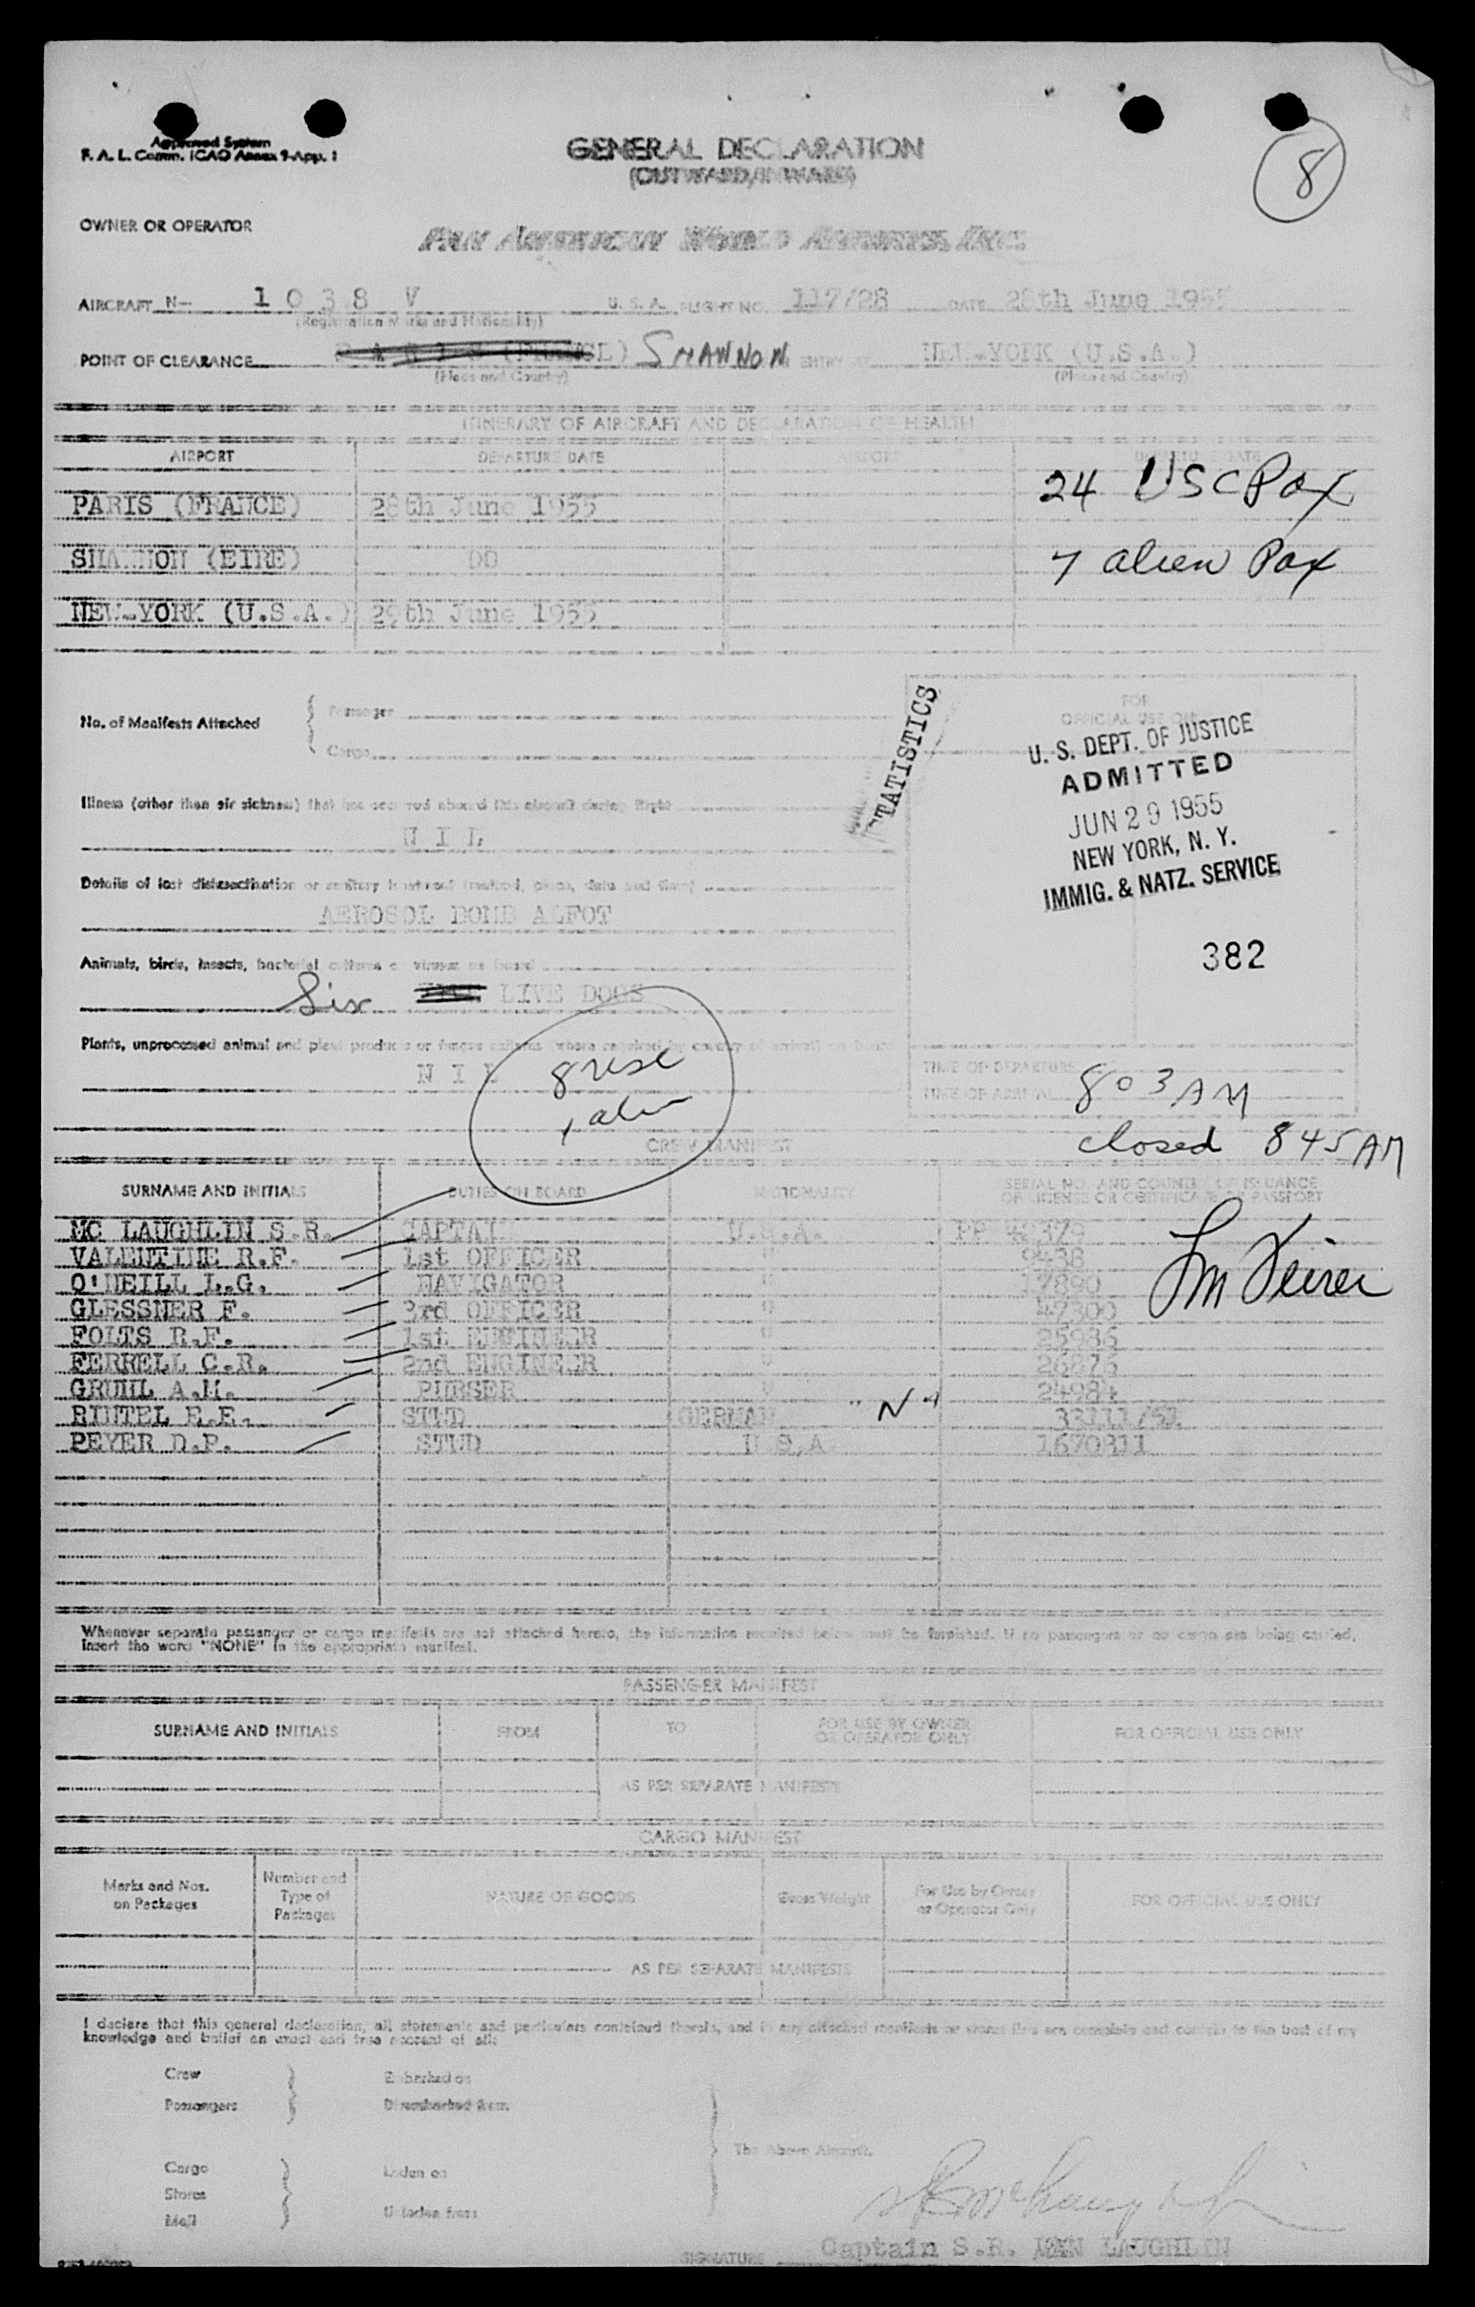 Approved System
F. A. L. Comm. ICAO Annex 9-App. 1
GENERAL DECLARATION
(OUTWARD/INWARD)
8
OWNER OR OPERATOR
PAN AMERICAN WORLD AIRWAYS, INC.
AIRCRAFT N- 1 0 3 8 V U. S. A. FLIGHT NO. 117/28 DATE 28th June 1955
(Registration Marks and Nationality)
POINT OF CLEARANCE P A R I S (FRANCE) SHANNON ENTRY AT NEW-YORK (U.S.A.)
(Place and Country) (Place and Country)
ITINERARY OF AIRCRAFT AND DECLARATION OF HEALTH
AIRPORT DEPARTURE DATE AIRPORT DEPARTURE DATE
24 USC Pax
PARIS (FRANCE) 28th June 1955
SHANNON (EIRE) DO
7 alien Pax
NEW-YORK (U.S.A.) 29th June 1955
No. of Manifests Attached
Passenger
Cargo
STATISTICS
FOR
OFFICIAL USE ONLY
U. S. DEPT. OF JUSTICE
ADMITTED
JUN 29 1955
NEW YORK, N. Y.
IMMIG. & NATZ. SERVICE
382
Illness (other than air sickness) that has occurred aboard this aircraft during flight
N I L
Details of last disinsectisation or sanitary treatment (method, place, date and time)
AEROSOL BOMB
Animals, birds, insects, bacterial cultures or viruses on board
Six LIVE DOGS
Plants, unprocessed animal and plant products or fungus cultures
N I L
8 usc
1 alien
TIME OF DEPARTURE
TIME OF ARRIVAL 803 AM
closed 845 AM
CREW MANIFEST
SURNAME AND INITIALS DUTIES ON BOARD NATIONALITY SERIAL NO. AND COUNTRY OF ISSUANCE
OF LICENSE OR CERTIFICATE OR PASSPORT
MC LAUGHLIN S.R. CAPTAIN U.S.A. PP 42379
VALENTINE R.F. 1st OFFICER " 9438
O'NEILL L.G. NAVIGATOR " 17890
GLESSNER F. 3rd OFFICER " 47300
FOLTS R.F. 1st ENGINEER " 25986
FERRELL C.R. 2nd ENGINEER " 26876
GRUHL A.M. PURSER " 24984
RINTEL E.E. STWD GERMAN "N"
PEYER D.P. STWD U.S.A. 1670811
Whenever separate passenger or cargo manifests are not attached hereto, the information required below must be furnished. If no passengers or no cargo are being carried,
insert the word "NONE" in the appropriate manifest.
PASSENGER MANIFEST
SURNAME AND INITIALS FROM TO FOR USE BY OWNER
OR OPERATOR ONLY FOR OFFICIAL USE ONLY
AS PER SEPARATE MANIFESTS
CARGO MANIFEST
Marks and Nos.
on Packages
Number and
Type of
Packages
NATURE OF GOODS
Gross Weight
For Use by Owner
or Operator Only
FOR OFFICIAL USE ONLY
AS PER SEPARATE MANIFESTS
I declare that this general declaration, all statements and particulars contained therein, and in any attached manifests or stores lists are complete and correct to the best of my
knowledge and belief an exact and true account of all:
Crew Embarked on
Passengers Disembarked from
The Above Aircraft.
Cargo Laden on
Stores
Mail Unladen from
SIGNATURE Captain S.R. LAUGHLIN